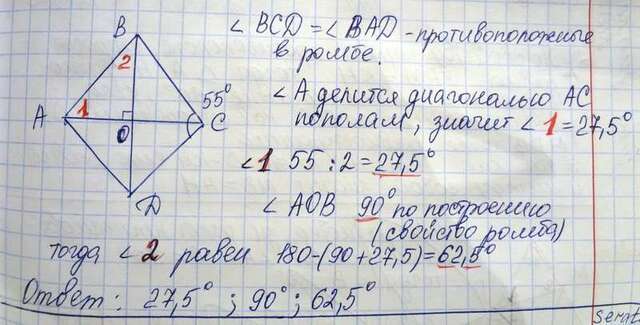 B
∠BCD = ∠BAD - противоположные
в ромбе.
2
55°
∠A делится диагональю AC
пополам, значит ∠1 = 27,5°
A
1
O
C
∠1 55 : 2 = 27,5°
∠AOB 90° по построению
(свойство ромба)
D
тогда ∠2 равен 180-(90+27,5)=62,5°
Ответ: 27,5°; 90°; 62,5°